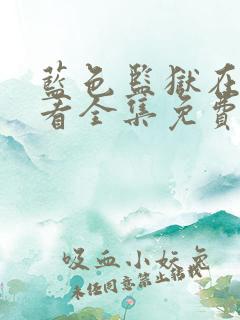 藍色監獄在
看全集免費
吸血小妖兔
未经同意禁止转载